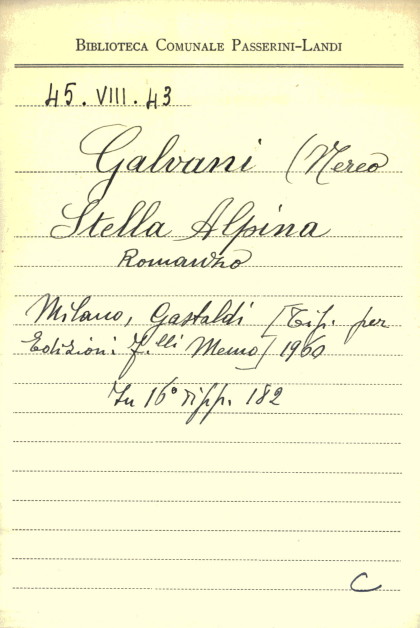 BIBLIOTECA COMUNALE PASSERINI-LANDI
45. VIII. 43
Galvani (Nereo
Stella Alpina
Romanzo
Milano, Gastaldi [Tip. per
Edizioni F.lli Memo] 1960
In 16° pp. 182
C